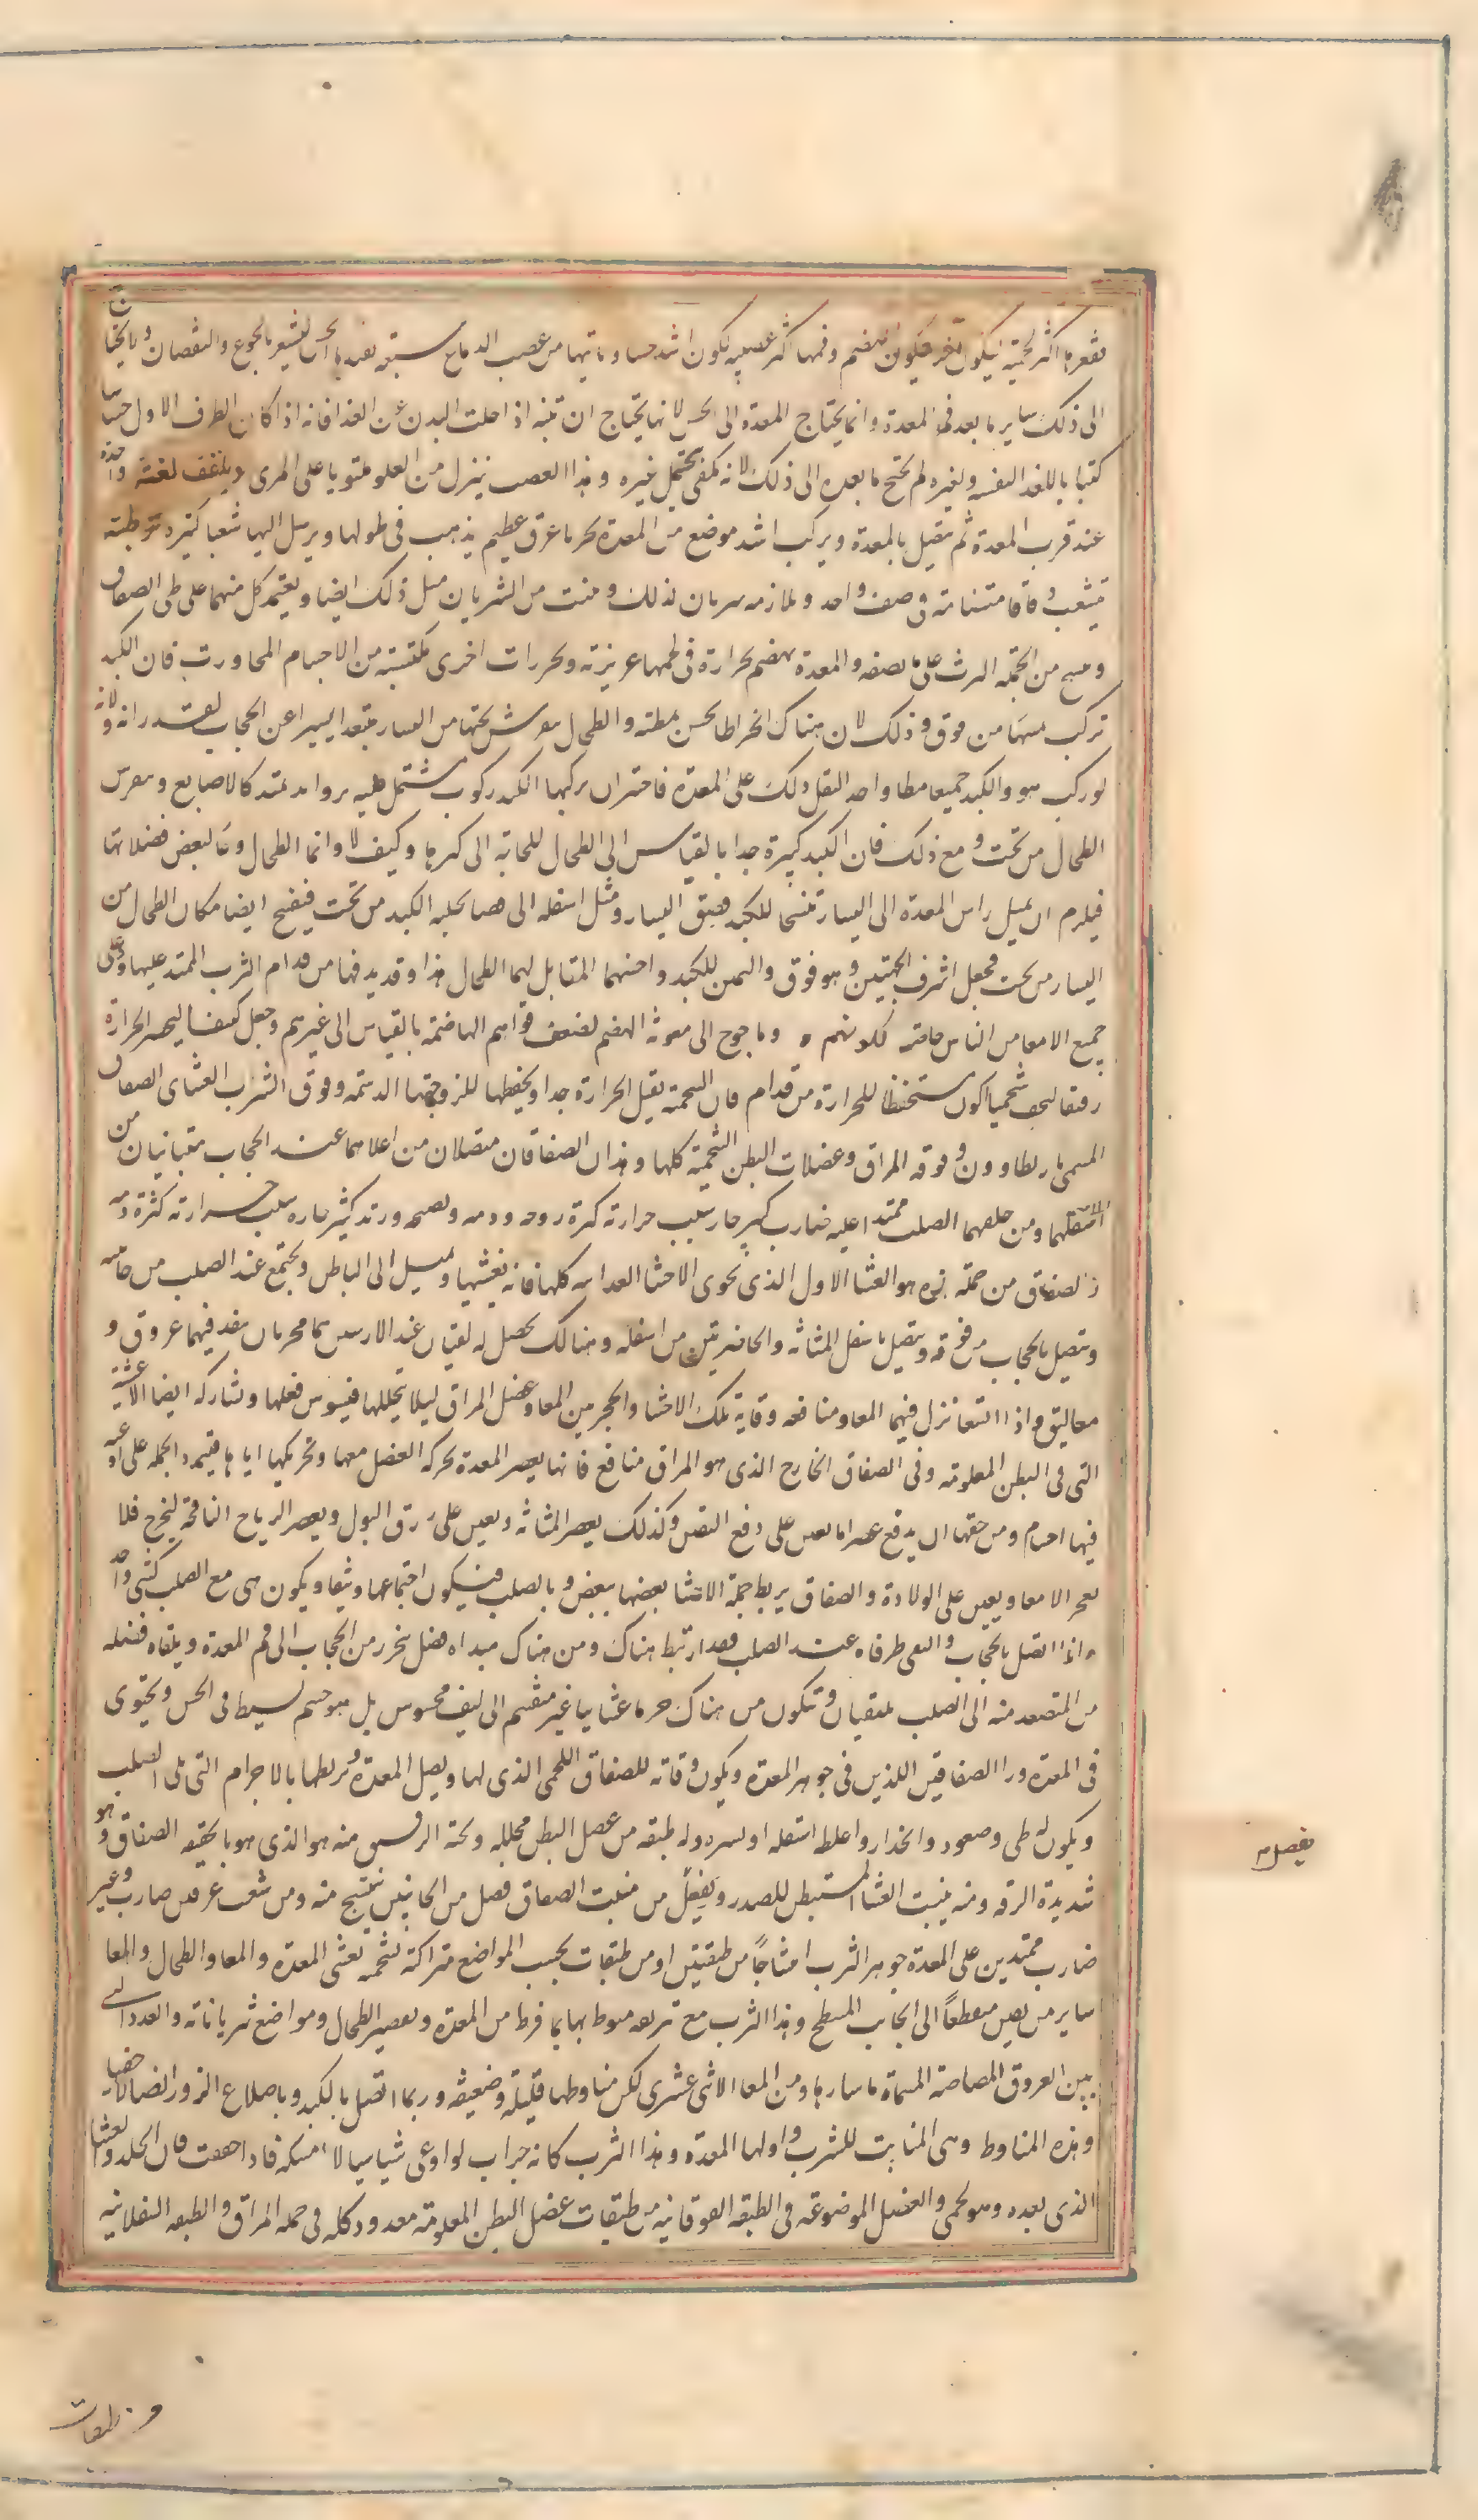 وقعرها اكثر لحمية ليكون احر فيكون اهضم وفمها اكثر عصبية ليكون اشد حسا وياتيها من عصب الدماغ شعبة تفيدها الحس لتشعر بالجوع والنقصان ولا يحتاج
الى ذلك ساير ما بعد فم المعدة وانما يحتاج المعدة الى الحس لانها يحتاج ان تنبه اذا خلت البدن عن الغذا فانه اذا كان الطرف الاول حساسا
كتبا بالاغذا لنفسه ولغيره لم يحتج ما بعده الى ذلك لانه مكفى بتحمل غيره وهذا العصب ينزل من العلو ملتويا على المرى ويلتف لفته واحدة
عند قرب المعدة ثم يتصل بالمعدة ويركب اشد موضع من المعدة تحدبا عرق عظيم يذهب فى طولها ويرسل اليها شعبا كثيرة ترتبط به
تتشعب دقاقا متضامة فى صف واحد ويلازمه شريان كذلك وينبت من الشريان مثل ذلك ايضا ويعتمد كل منهما على طى الصفاق
وينسج من الجملة الثرب على ما نصفه والمعدة تهضم بحرارة فى لحمها غريزية وبحرارات اخرى مكتسبة من الاجسام المجاورة فان الكبد
تركب يمينها من فوق وذلك لان هناك انخراطا يحسن تمطيه والطحال منفرش تحتها من اليسار متبعد اليسيرا عن الحجاب لقدرانه ولانه
لو ركب هو والكبد جميعا مطا واحد الثقل ذلك على المعدة فاختير ان يركبها الكبد ركوب مشتمل عليه بزوايد تمتد كالاصابع وينفرش
الطحال من تحت ومع ذلك فان الكبد كبيرة جدا بالقياس الى الطحال للحاجة الى كبرها وكيف لا وانما الطحال وعاء لبعض فضلاتها
فيلزم ان يميل راس المعدة الى اليسار تفسحا للكبد فضيق اليسار وميل اسفله الى فضا يخليه الكبد من تحت فيفسح ايضا مكان الطحال من
اليسار من تحت فجعل اشرف الجهتين وهو فوق واليمين للكبد واخسهما المقابل لهما الطحال هذا وقد يدفيها من قدام الثرب الممتد عليها وعلى
جميع الامعا من الناس خاصة لكونهم احوج الى معونة الهضم لضعف قواهم الهاضمة بالقياس الى غيرهم وجعل كثيفا ليحصر الحرارة
رقيقا ليخف شحميا ليكون مستحفظا للحرارة من قدام فان الشحمية تقبل الحرارة جدا ويحفظها للزوجتها الدسمة وفوق الثرب الغشاى الصفاق
المسمى باريطاوون وفوقه المراق وعضلات البطن الشحمية كلها وهذان الصفاقان متصلان من اعلاهما عند الحجاب متباينان من
اسفلهما ومن خلفهما الصلب ممتدا عليه ضارب كبير حار بسبب حرارته كثرة روحه ودمه ويصحبه وريد كبير حار بسبب حرارته كثرة دمه
والصفاق من جملة هذه هو الغشا الاول الذى يحوى الاحشا الغذايه كلها فانه يغشيها ويميل الى الباطن ويجتمع عند الصلب من جانبيه
ويتصل بالحجاب من فوقه ويتصل باسفل المثانة والخاصرتين من اسفله وهنالك يحصل له ثقبتان عند الاربيتين هما مجريان ينفذ فيهما عروق و
معاليق واذا اتسعا نزل فيهما المعا ومنافعه وقاية تلك الاحشا والحجز بين المعا وعضل المراق ليلا يتخللها فيشوش فعلها وتشاركه ايضا الاغشية
التى فى البطن المعلومة وفى الصفاق الخارج الذى هو المراق منافع فانها يعصر المعدة بحركة العضل معها وتحريكها اياها فيتمدد الجملة على اوعية
فيها اجسام ومن حقها ان يدفع عصرا ما يعين على دفع الثفل وكذلك يعصر المثانة ويعين على زرق البول ويعصر الرياح النافخة ليخرج فلا
يعجز الامعا ويعين على الولادة والصفاق يربط جملة الاحشا بعضها ببعض وبالصلب فيكون اجتماعها وثيقا ويكون هى مع الصلب كشى واحد
واذا اتصل بالحجاب والتقى طرفاه عند الصلب فقد ارتبط هناك ومن هناك مبداه فضل ينحدر من الحجاب الى فم المعدة ويلقاه فضلة
من المتصعد منه الى الصلب يلتقيان ويتكون من هناك جرما غشاييا غير منقسم الى ليف محسوس بل هو جسم بسيط فى الحس ويحتوى
فى المعدة ورا الصفاقين اللذين فى جوهر المعدة ويكون وقاية للصفاق اللحمى الذى لها ويصل المعدة ويربطها بالاجرام التى تلى الصلب
ويكون له طى وصعود وانحدار واغلظه اسفله او يسره وله طبقة من عضل البطن مجلله وتحته الرقيق منه هو الذى هو بالحقيقة الصفاق وهو
شديدة الرقة ومنه ينبت الغشا المستبطن للصدر ويفضل من منبت الصفاق فضل من الجانبين ينتسج منه ومن شعب عرقين ضارب وغير
ضارب ممتدين على المعدة جوهر الثرب امتشاجًا من طبقتين او من طبقات بحسب المواضع متراكبة شحمية تغشى المعدة والمعا والطحال والماسا
ساير من يعين منعطفًا الى الجانب المسطح وهذا الثرب مع تربعه منوط بها بما فرط من المعدة وبقعير الطحال ومواضع شرياناته والغدد التى
بين العروق المصاصة المسماة ماساريقا ومن المعا الاثنى عشرى لكن مناوطها قليلة وضعيفة وربما اتصل بالكبد وباضلاع الزور ايضا اتصالا خفيا
وهذه المناوط وهى المنابت للثرب واولها المعدة وهذا الثرب كانه جراب لو اوعى شياسيالا امسكه فاذا حققت فان الجلد والغشا
الذى بعده وهو لحمى والعضل الموضوعة فى الطبقة الفوقانية من طبقات عضل البطن المعلومة معدود كله فى جملة المراق والطبقة السفلانية
يفصل
من طبقات